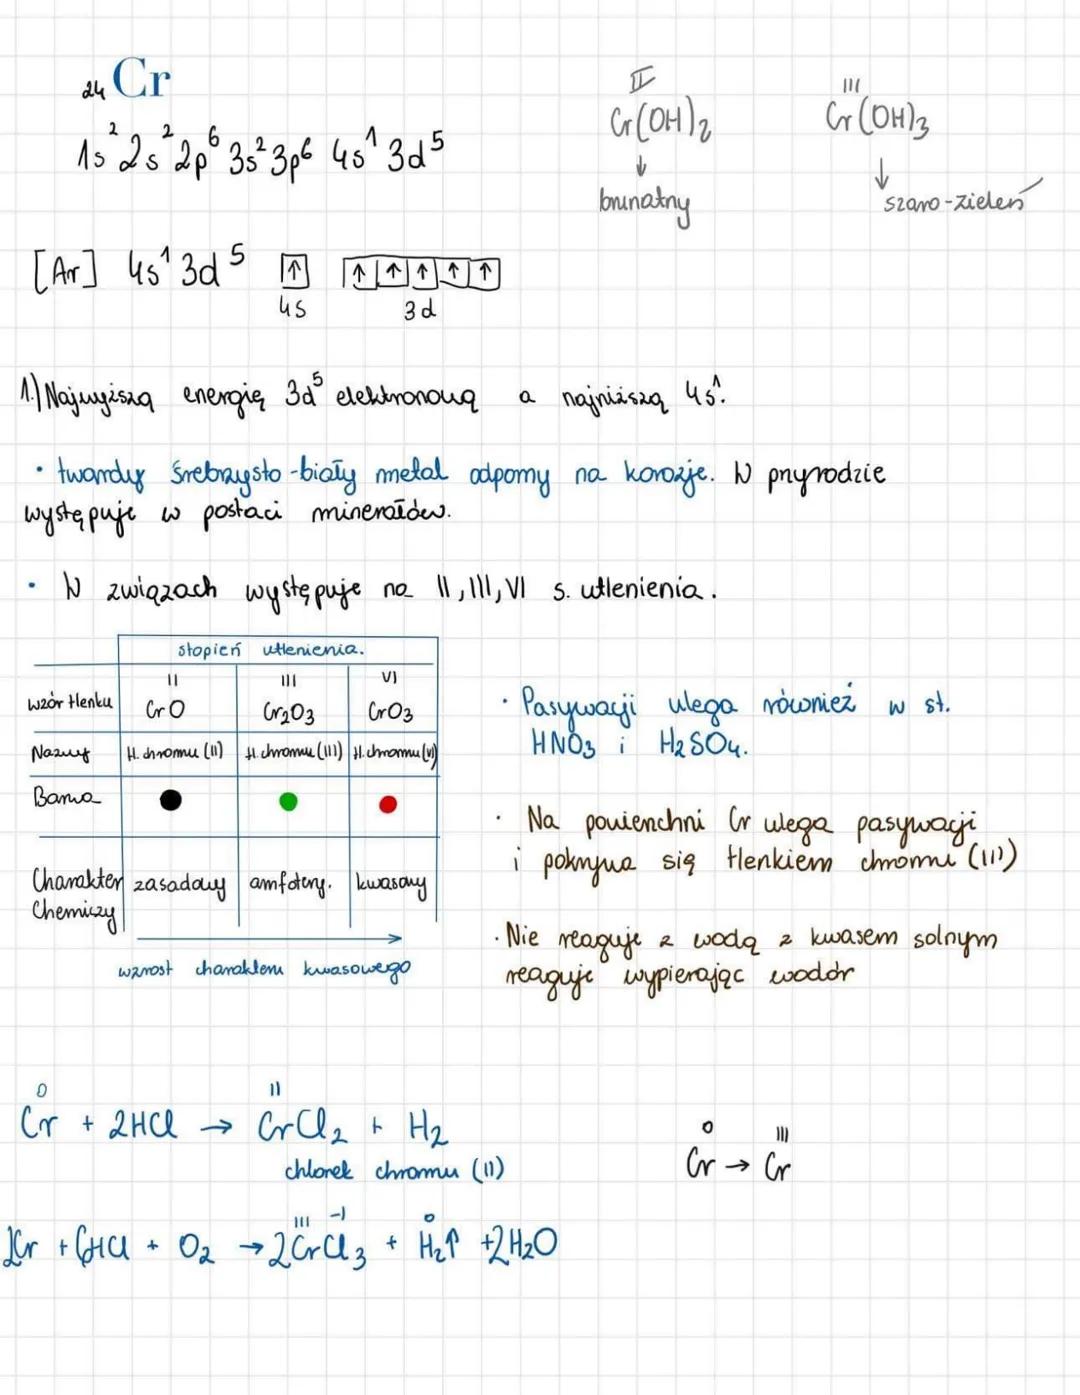 ₂₄Cr
1s² 2s² 2p⁶ 3s² 3p⁶ 4s¹ 3d⁵
II
Cr(OH)₂
↓
brunatny
III
Cr(OH)₃
↓
szaro-zieleń
[Ar] 4s¹ 3d⁵ ↑ ↑ ↑ ↑ ↑ ↑
4s 3d
1.) Najwyższą energię 3d⁵ elektronową a najniższą 4s¹.
• twardy srebrzysto-biały metal odporny na korozje. W przyrodzie
występuje w postaci minerałów.
• W związach występuje na II, III, VI s. utlenienia.
stopień utlenienia.
II III VI
wzór tlenku CrO Cr₂O₃ CrO₃
Nazwy tl. chromu (II) tl. chromu (III) tl. chromu (VI)
Barwa
Charakter zasadowy amfotery. kwasowy
Chemiczy
→
wzrost charakteru kwasowego
• Pasywacji ulega również w st.
HNO₃ i H₂SO₄.
• Na powierzchni Cr ulega pasywacji
i pokrywa się tlenkiem chromu (III)
• Nie reaguje z wodą z kwasem solnym
reaguje wypierając wodór
0 II
Cr + 2HCl → CrCl₂ + H₂
chlorek chromu (II)
0 III
Cr → Cr
III -I 0
2Cr + 6HCl + O₂ → 2CrCl₃ + H₂↑ + 2H₂O